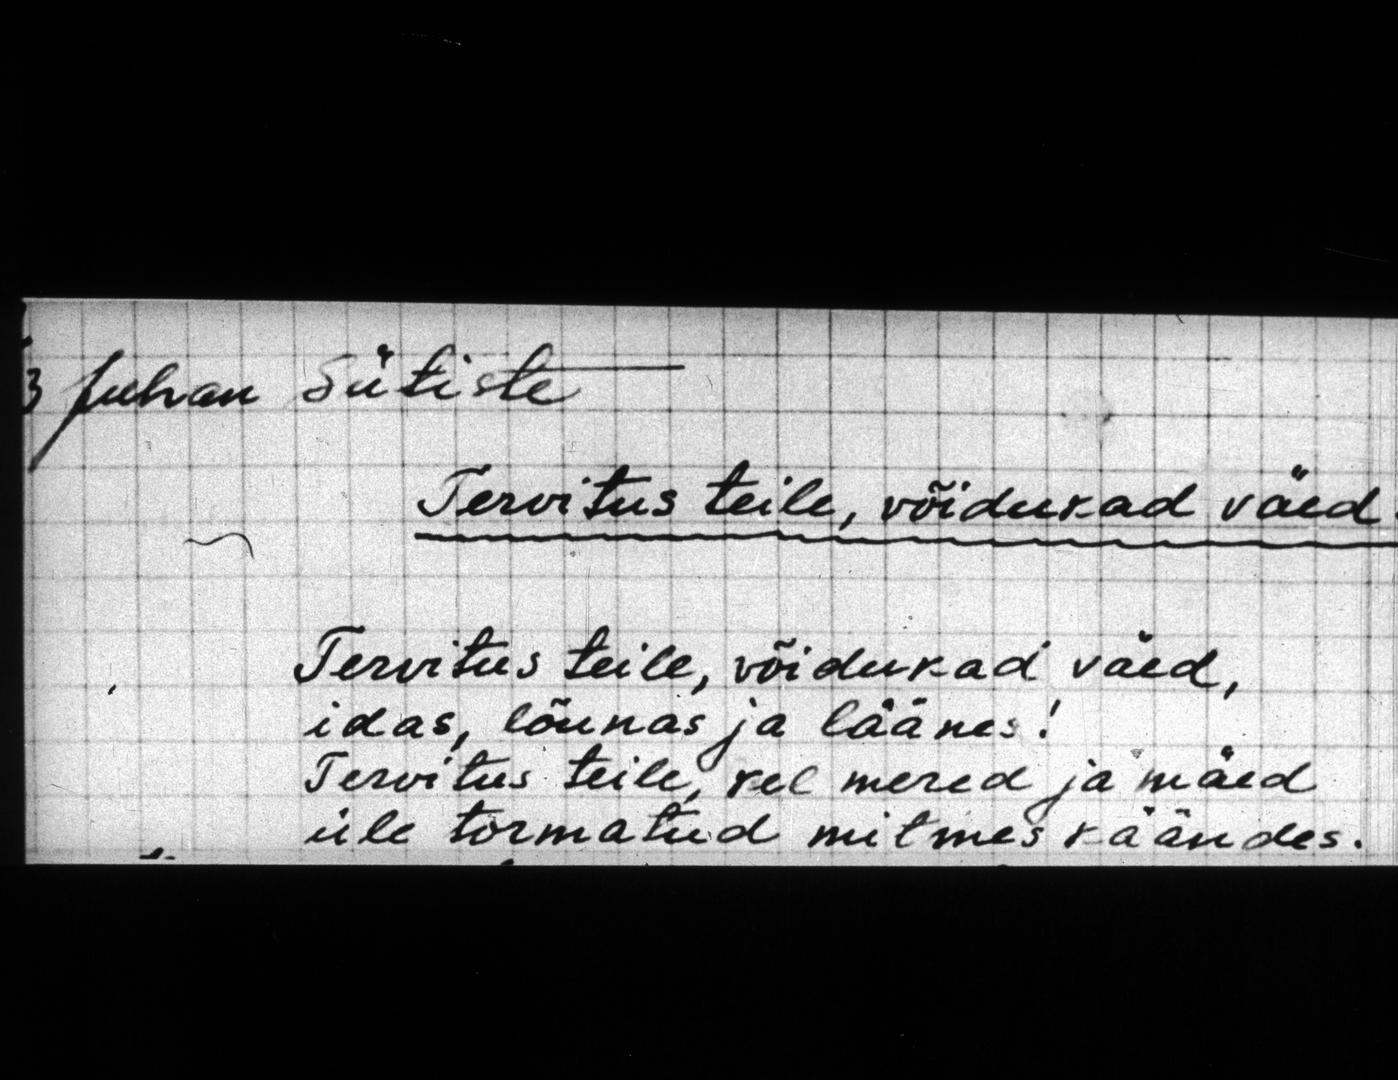 3 Juhan Sütiste
Tervitus teile, võidukad väed.
Tervitus teile, võidukad väed,
idas, lõunas ja läänes!
Tervitus teile, kel mered ja mäed
üle tormatud mitmes käändes.